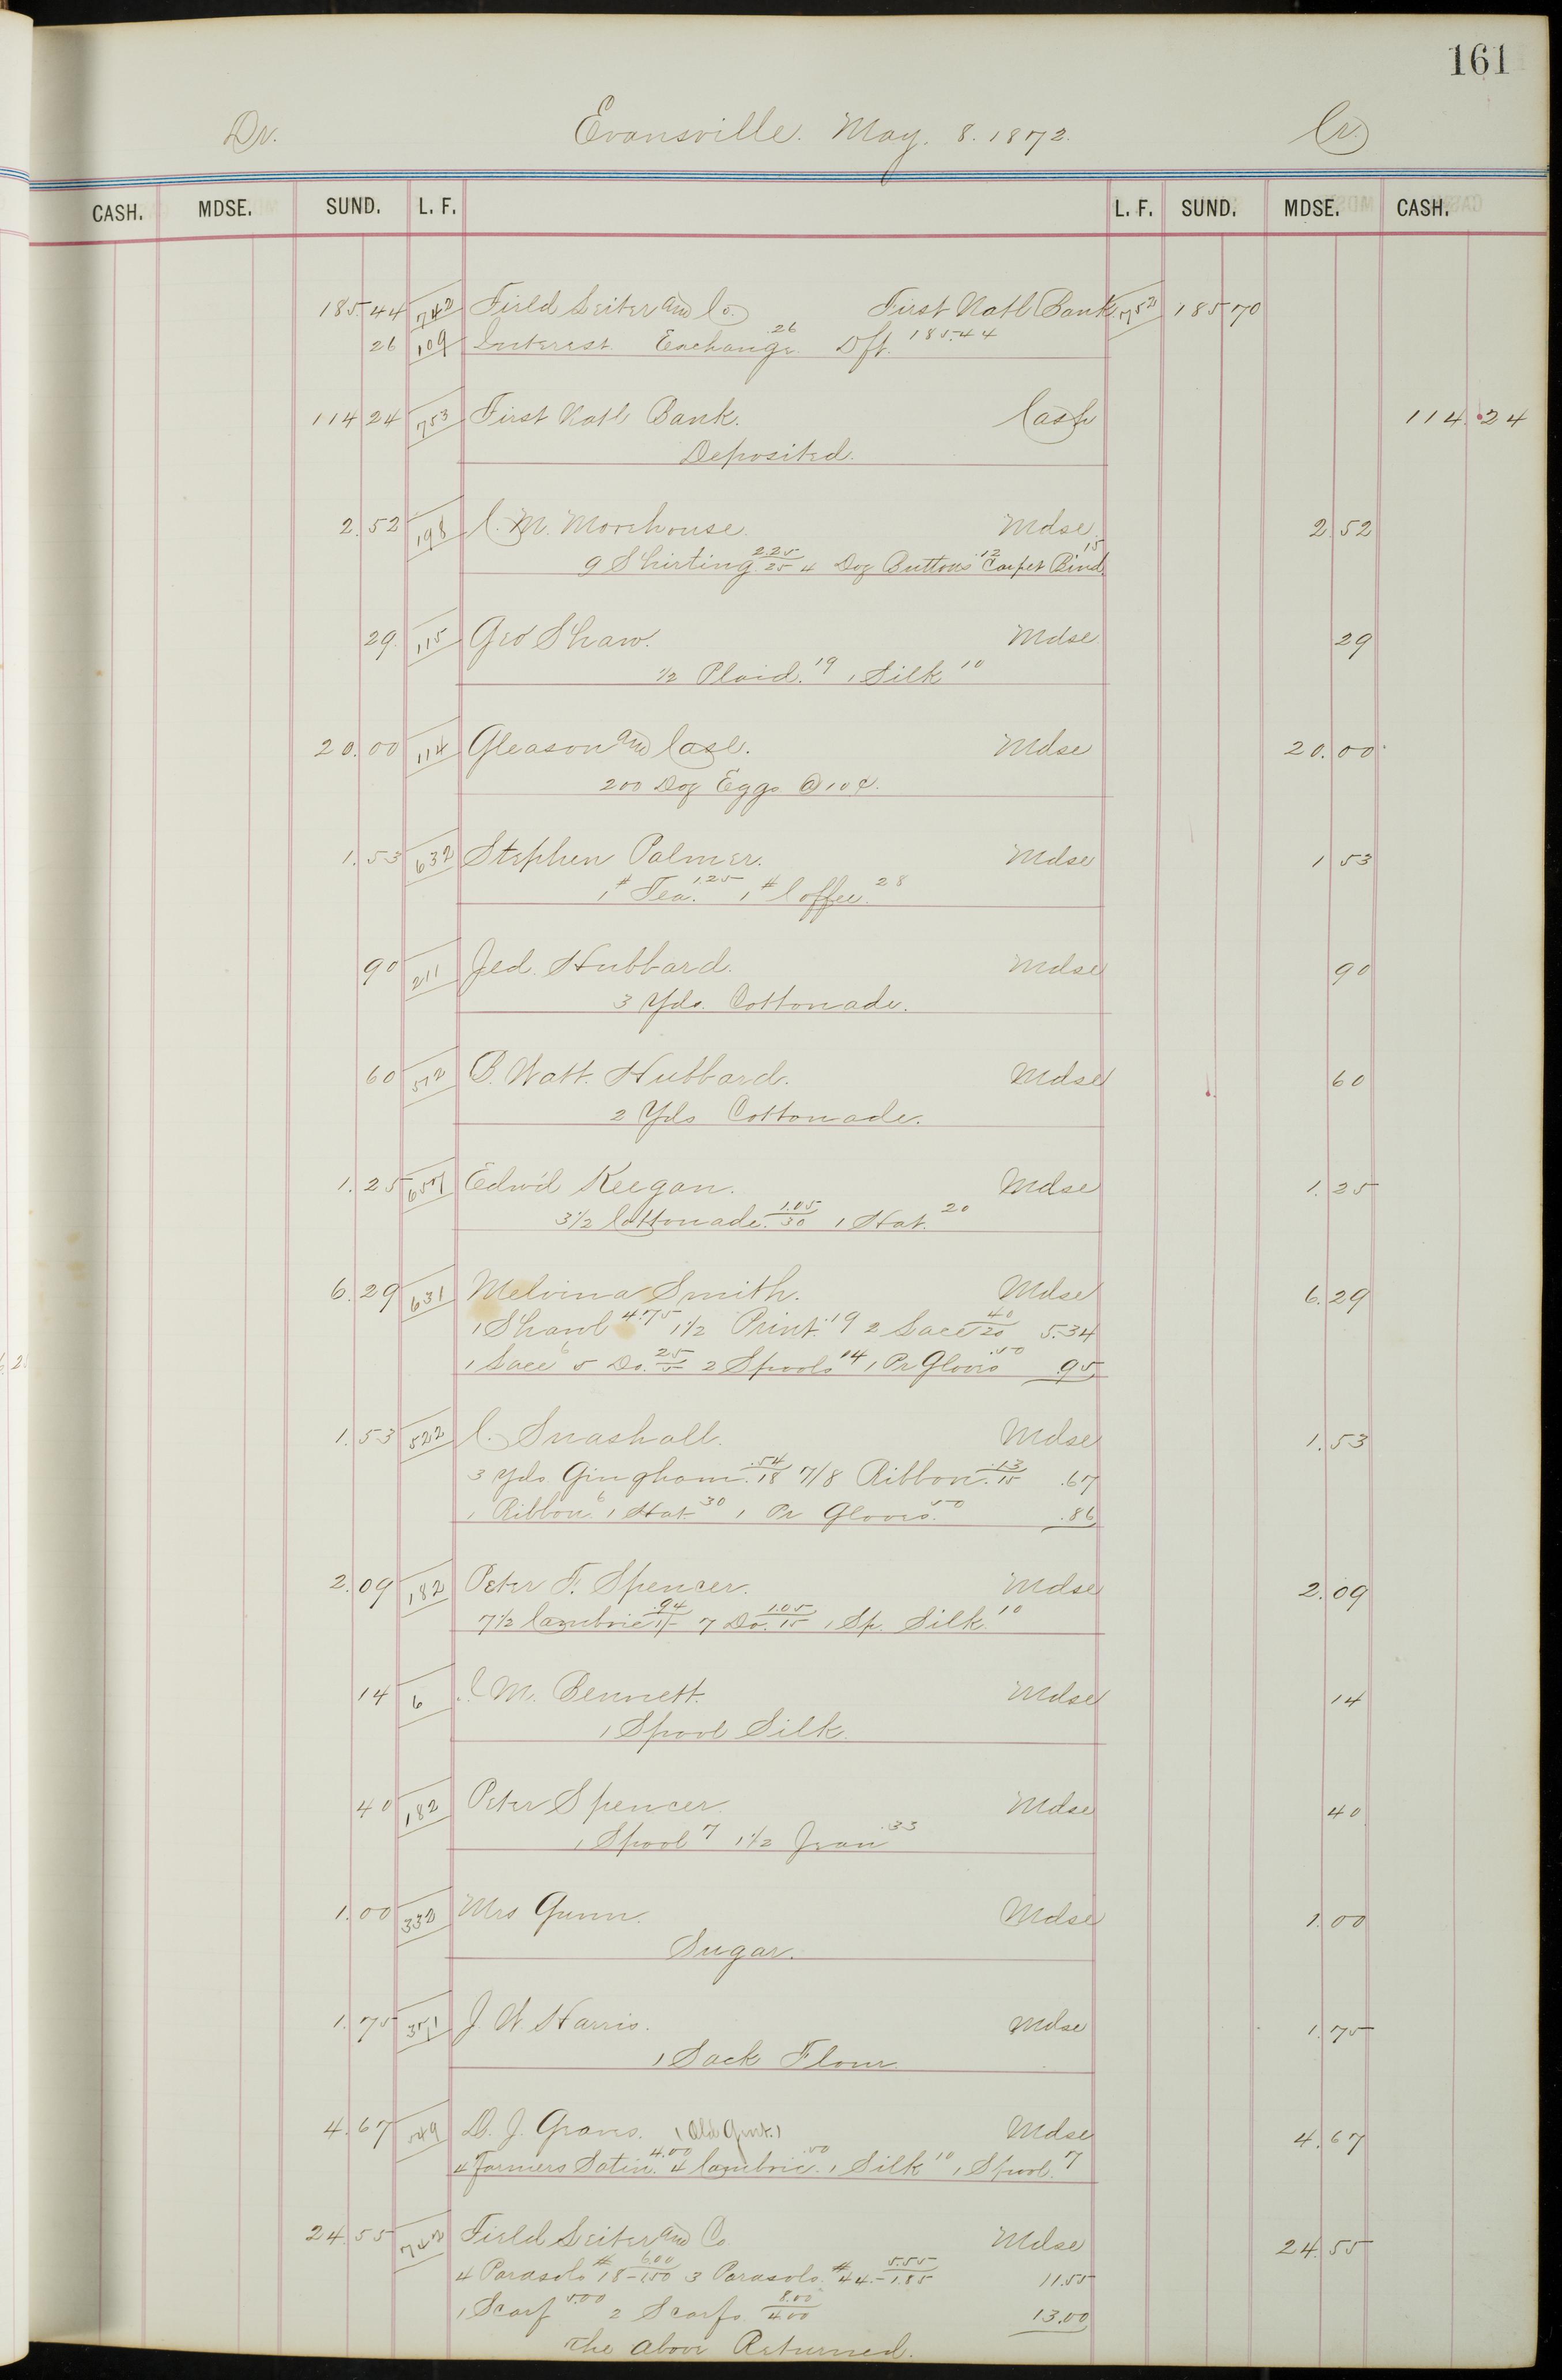 161
Dr. Evansville. May. 8. 1872. Cr.
CASH. MDSE. SUND. L. F. L. F. SUND. MDSE. CASH.
185.44 742 Field Leiter and Co. First Natl Bank 752 185 70
26 109 Interest Exchange .26 Dft. 185.44
114 24 753 First Natl Bank. Cash 114.24
Deposited.
2.52 198 C. M. Morehouse. Mdse. 2 52
9 Shirting 2.25/25 4 Doz Buttons .12 Carpet Bind 15
29 115 Geo Shaw. Mdse 29
1/2 Plaid. 19 1 Silk 10
20.00 114 Gleason and Case. Mdse 20.00
200 Doz Eggs @ 10¢.
1.53 632 Stephen Palmer. Mdse 1 53
1 # Tea. 1.25 1 # Coffee. 28
90 211 Jed. Hubbard. Mdse 90
3 Yds. Cottonade.
60 572 B. Watt. Hubbard. Mdse 60
2 Yds Cottonade.
1.25 657 Edw'd Keegan. Mdse 1.25
3 1/2 Cottonade. 1.05/30 1 Hat. 20
6.29 631 Melvina Smith. Mdse 6.29
1 Shawl 4.75 1 1/2 Print. .19 2 Lace 40/20 5.34
1 Lace 6 5 Do. 25/5 2 Spools 14 1 Pr Gloves .50 .95
1.53 522 C. Snashall. Mdse 1.53
3 Yds Gingham .54/18 7/8 Ribbon .13/15 .67
1 Ribbon 6 1 Hat 30 1 Pr Gloves. 50 .86
2.09 182 Peter F. Spencer. Mdse 2.09
7 1/2 Cambric .94 7 Do. 1.05/15 1 Sp. Silk. 10
14 6 C M. Bennett. Mdse 14
1 Spool Silk.
40 182 Peter Spencer Mdse 40
1 Spool 7 1 1/2 Jean .33
1.00 332 Mrs Gunn. Mdse 1.00
Sugar.
1.75 351 J W Harris. Mdse 1.75
1 Sack Flour
4.67 549 D. J. Graves. Mdse 4.67
4 Farmers Satin. 4.00 4 Cambric. .50 1 Silk 10 1 Spool. 7
24.55 742 Field Leiter and Co. Mdse 24.55
4 Parasols # 18 - 6.00/1.50 3 Parasols. # 44. - 5.55/1.85 11.55
1 Scarf 5.00 2 Scarfs 8.00/4.00 13.00
The above Returned.